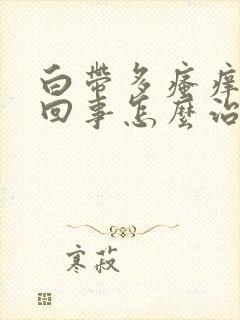 白帶多瘙痒
回事怎麼治
寒菽